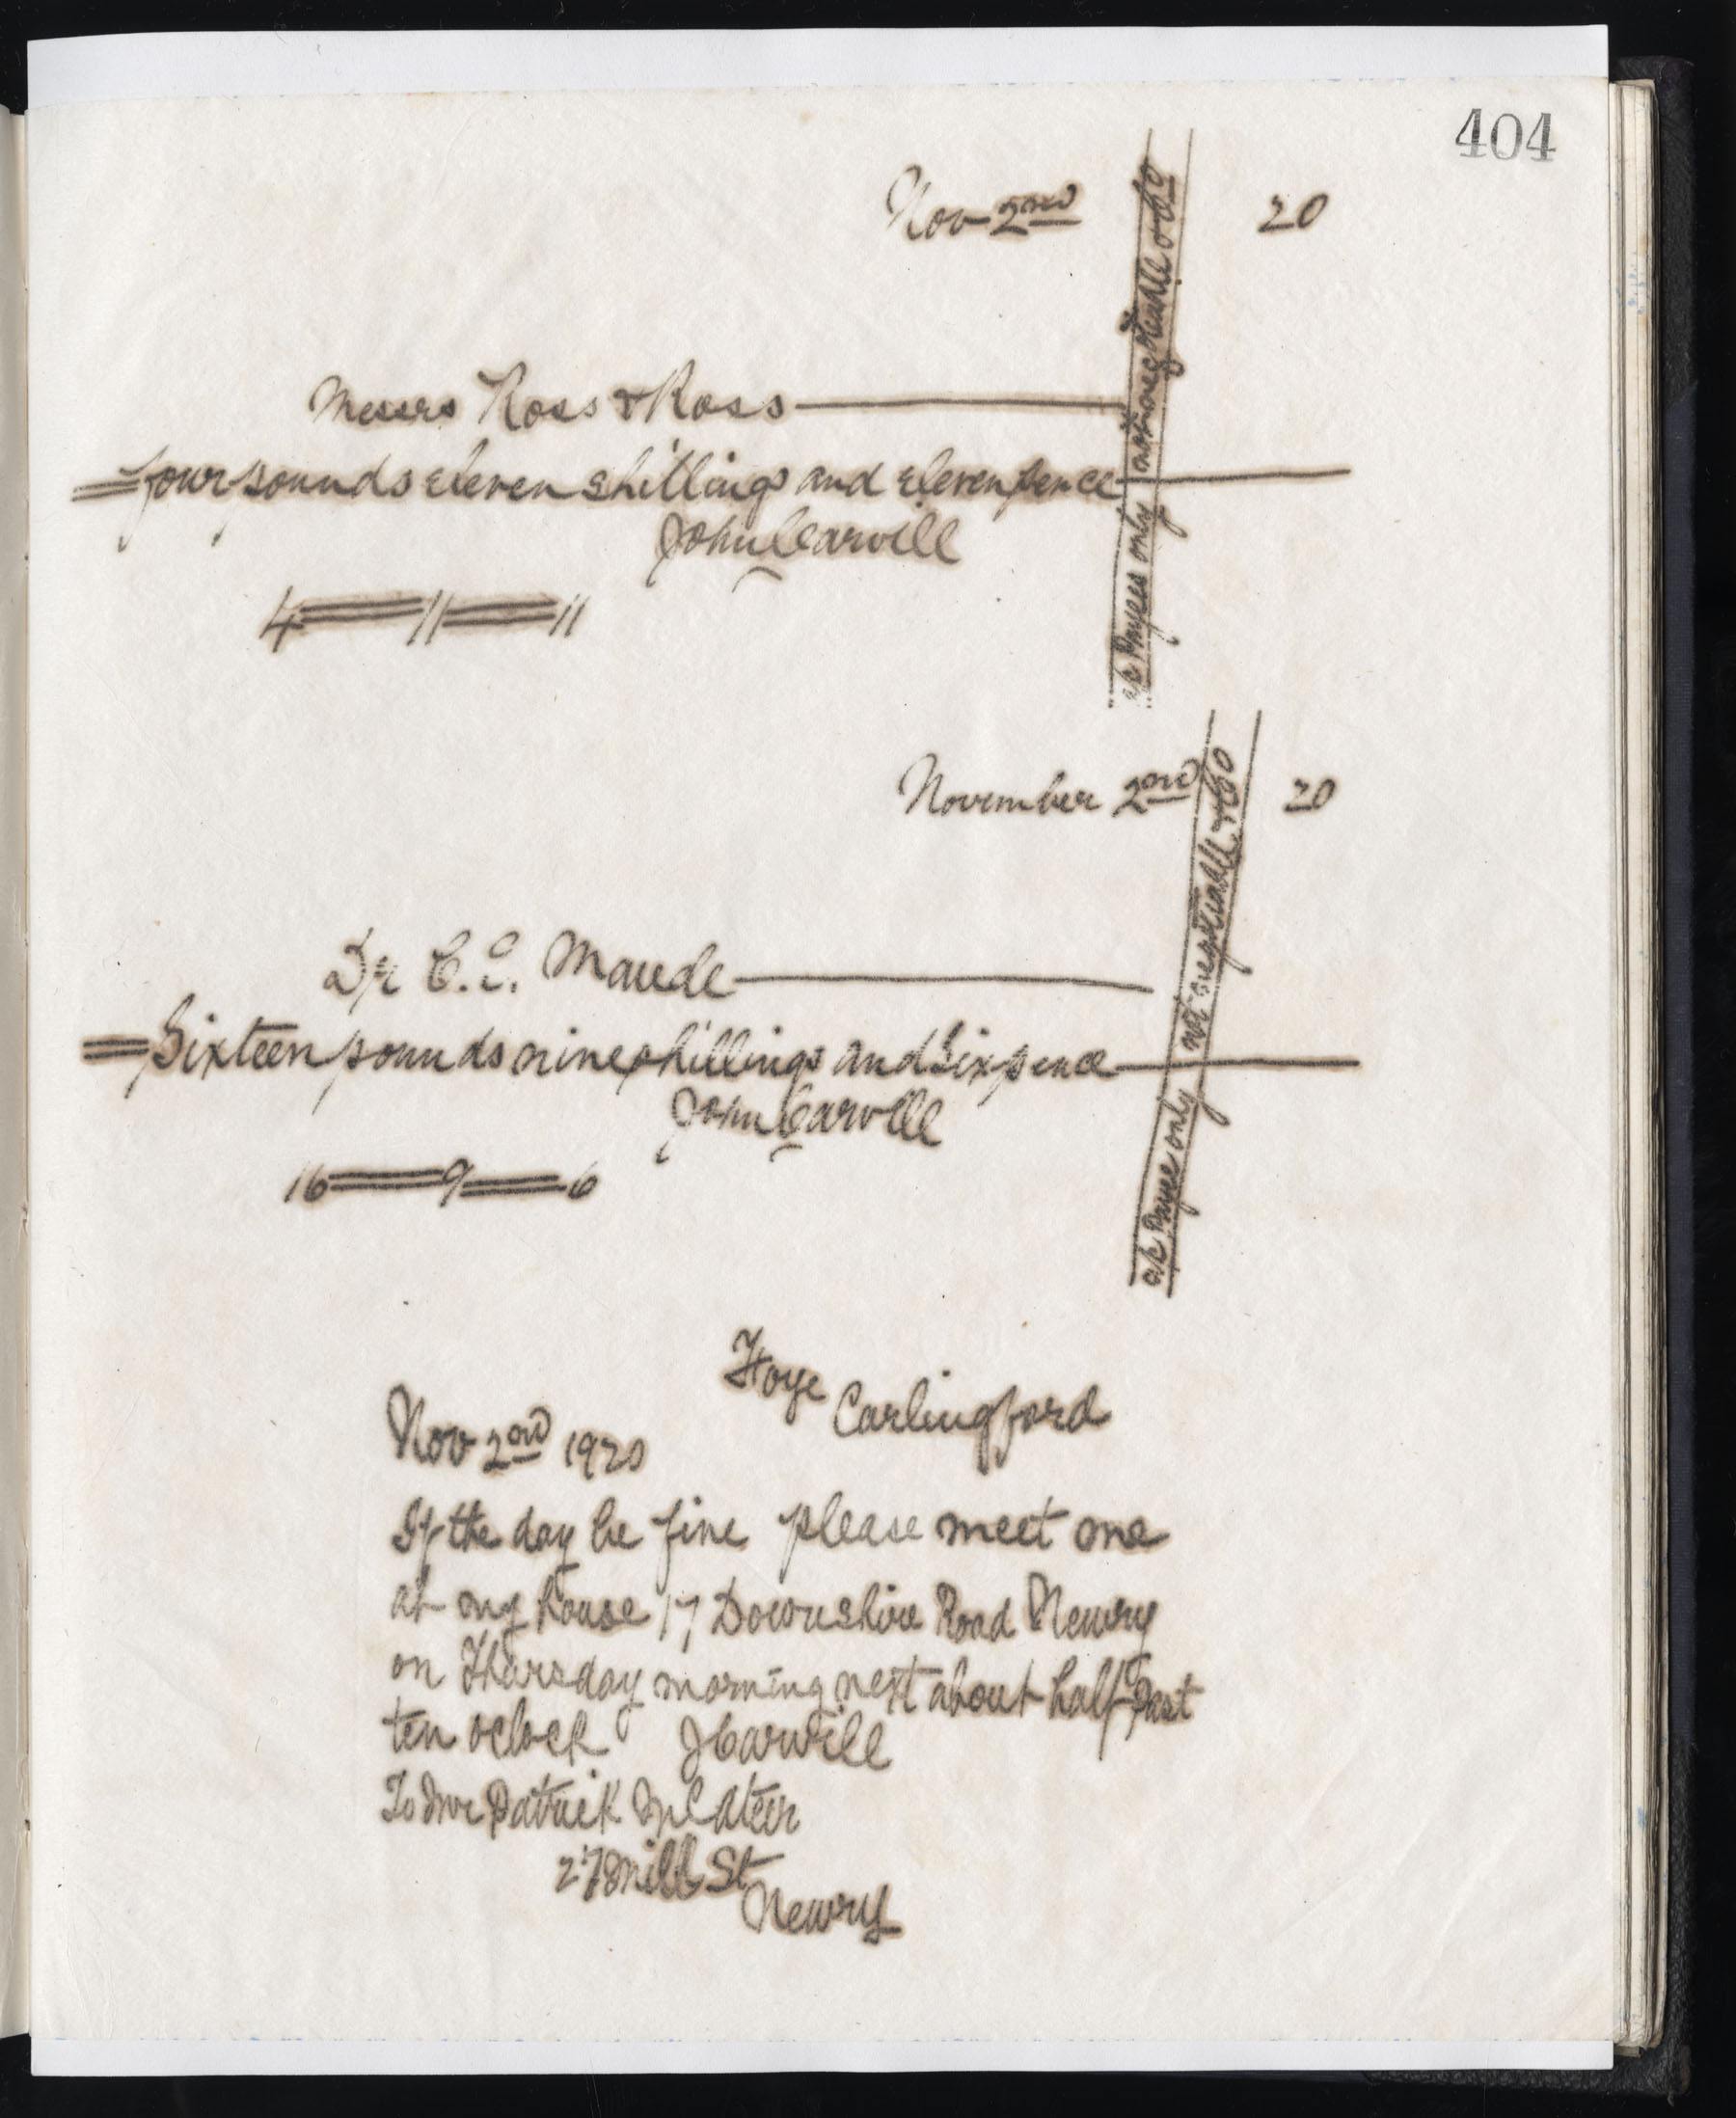 404
Nov 2nd 20
a/c Payees only not negotiable & Co
Messrs Ross & Ross
four pounds eleven shillings and eleven pence
John Carvill
4 = 11 = 11
November 2nd 20
a/c Payee only not negotiable & Co
Dr C. E. Maude
Sixteen pounds nine shillings and Sixpence
John Carvill
16 = 9 = 6
Carlingford
Nov 2nd 1920
If the day be fine please meet me
at my house 17 Downshire Road Newry
on Thursday morning next about half past
ten oclock J Carvill
To Mr Patrick McAteer
Mill St
Newry